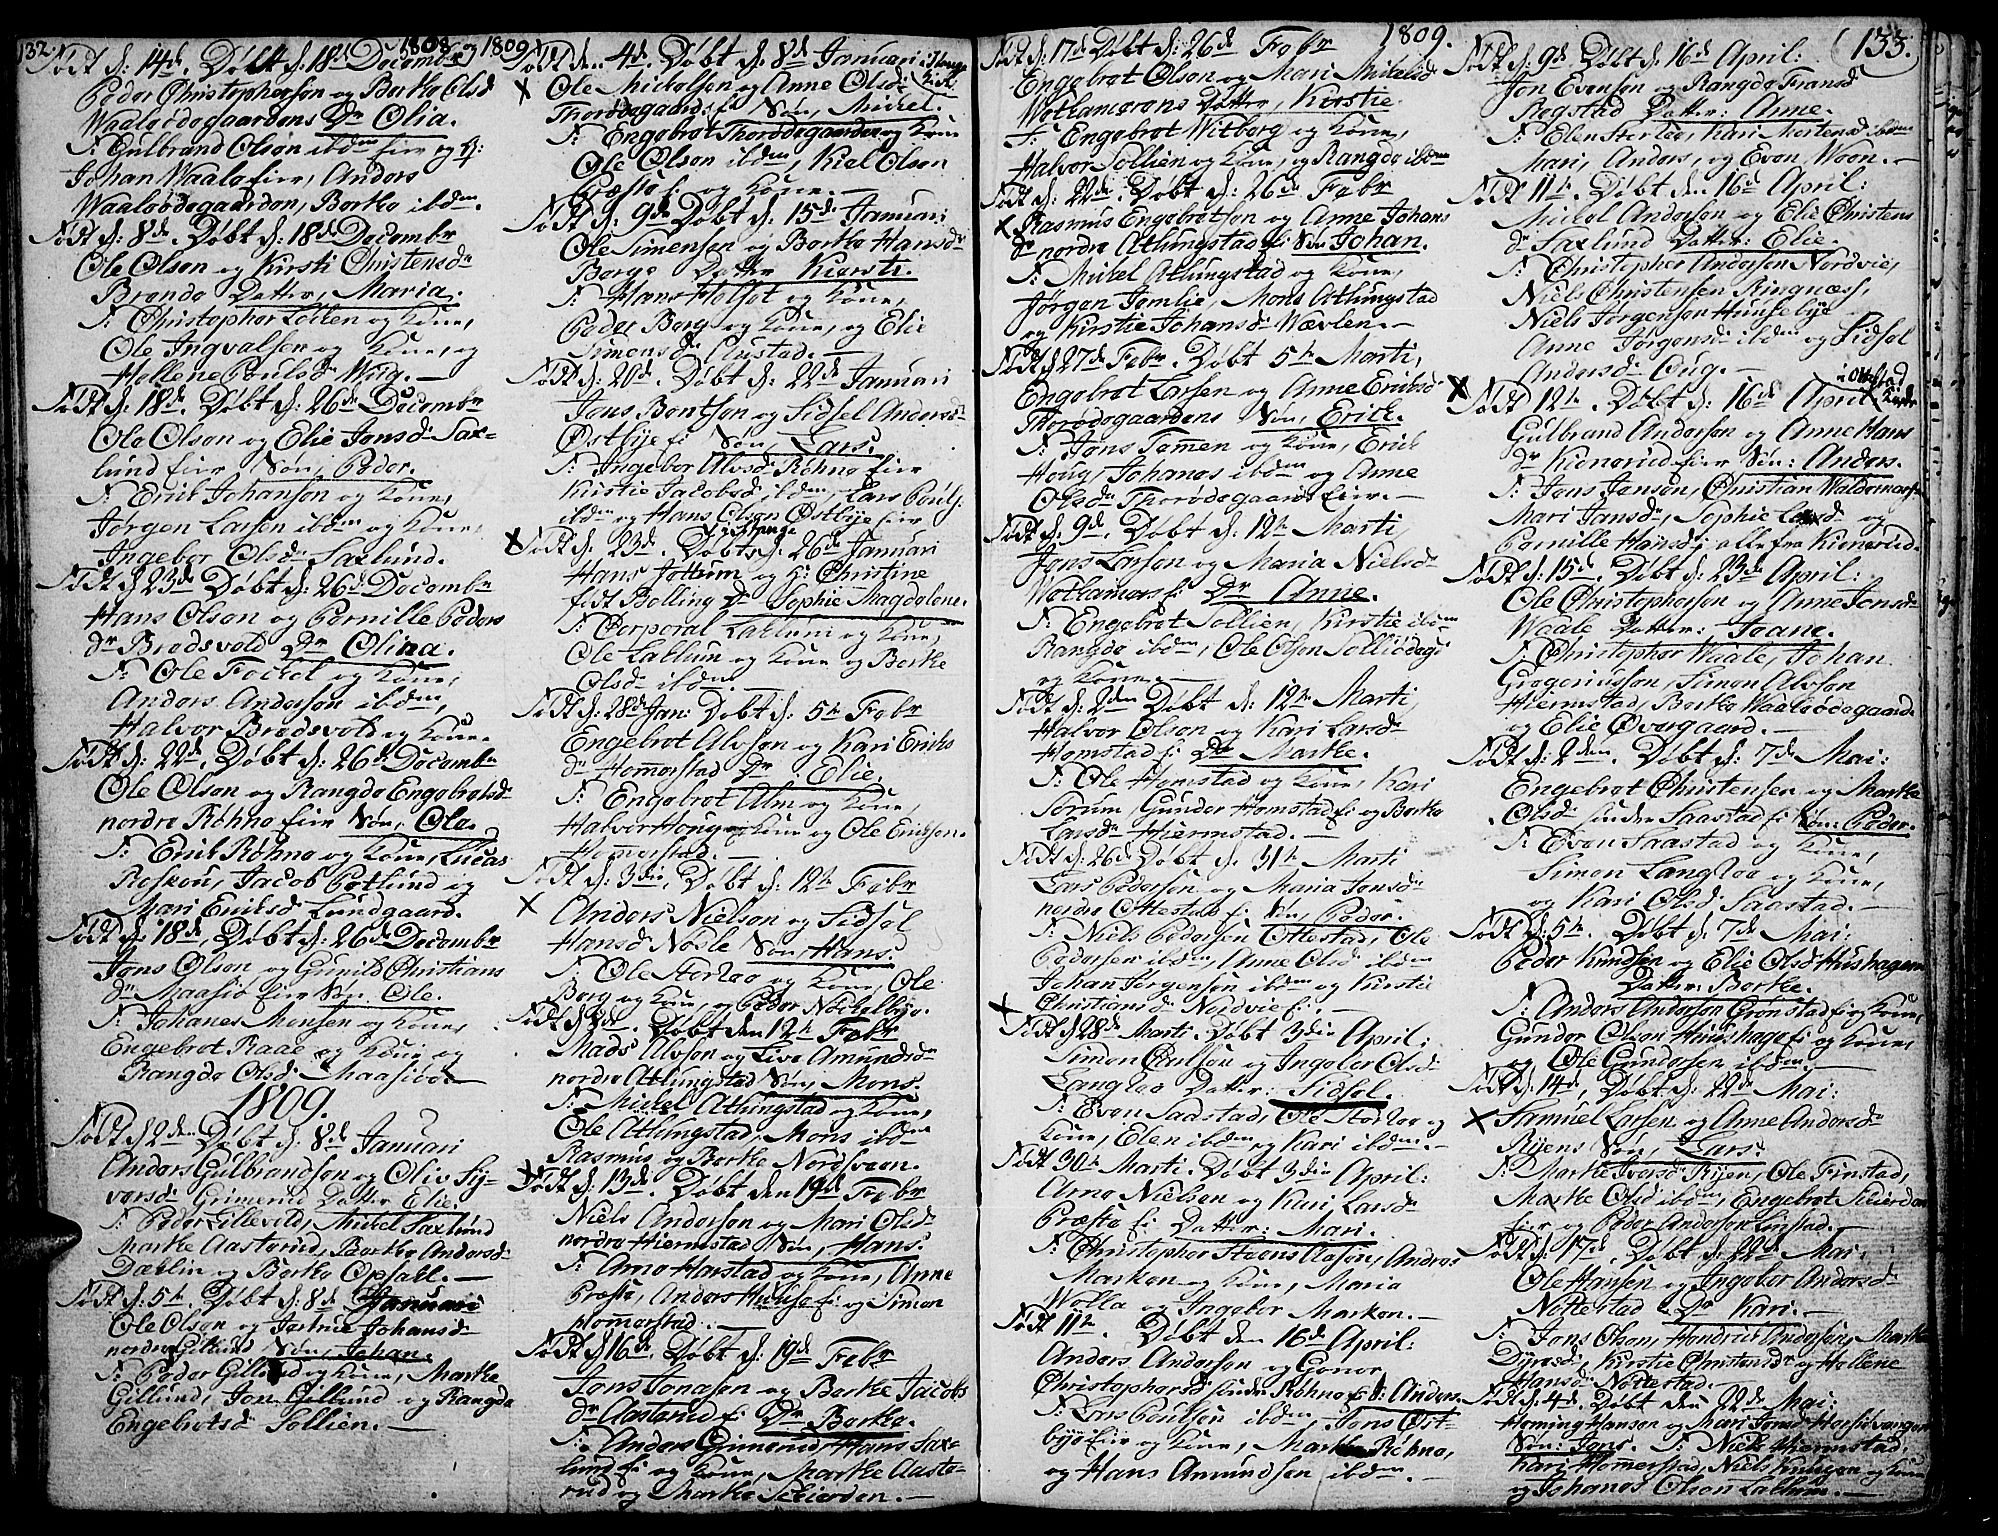 132.
1808 og 1809
Født d: 14de. Døbt d: 18de Decembr
Peder Christophersen og Berthe Olsd
Waaleødegaardens Dr Olia.
T: Gulbrand Olsen ibdm eier og K:
Johan Waale eier, Anders
Waaleødegaarden, Berthe ibdm.
Født d: 8de. Døbt d: 18de Decembr
Ole Olsen og Kirsti Christensdr
Brende Datter, Maria.
T: Christopher Løken og Kone,
Ole Ingvalsen og Kone, og
Hellene Poulsdr Wiig.
Født d: 18de. Døbt d: 26de Decembr
Ole Olsen og Elie Jensdr Sax-
lund eier Søn, Peder.
T: Erik Johansen og Kone,
Jørgen Larsen ibdm og Kone,
Ingebor Olsdr Saxlund.
Født d: 23de Døbt d: 26de Decembr
Hans Olsen og Pernille Peders
dr Bredsvold Dr Olina.
T: Ole og Kone,
Anders Andersen ibdm,
Halvor Bredsvold og Kone.
Født d: 22de. Døbt d: 26de Decembr
Ole Olsen og Rangde Engebretsdr
nordre Røhne eier Søn, Ole.
T: Erik Røhne og Kone, Lucas
Roskou, Jacob Potlund og
Mari Eriksd Lundgaard.
Født d: 18de, Døbt d: 26de Decembr
Jens Olsen og Gunild Christians
dr Maasiø eier Søn. Ole.
T: Johanes Monsen og Kone,
Engebret Raae og Kone og
Rangde Olsdr Maasiøe
1809.
Født d: 2den. Døbt d: 8de Januari
Anders Gulbrandsen og Oliv Sy-
versdr Grimerud Datter Elie.
T: Peder Lillevold, Mickel Saxlund
Marthe Aasterud, Berthe Andersdr
Dæhlin og Berthe Opsahl.
Født d: 5te. Døbt d: 8de Januari
Ole Olsen og Jertrue Johansdr
nordre Gillund Søn, Johan.
T: Peder Gillund og Kone, Marthe
Gillund, Jon Gillund og Rangde
Engebretsdr Sollien.
Født den 4de. Døbt d: 8de Januari i Stange Kirke
Ole Mickelsen og Anne Olsdr
Thorødegaards ei Søn, Mickel.
T: Engebret Thorødegaarden og Kone
Ole Olsen ibdm, Kiel Olsen
Præste ei og Kone.
Født d: 9de Døbt d: 15de Januari
Ole Simensen og Berthe Hansdr
Berge Datter Kiersti.
T: Hans Holset og Kone,
Peder Berg og Kone, og Elie
Simensdr Austad.
Født d: 20de. Døbt d: 22de Januari
Jens Bentsen og Sidsel Andersdr
Østbye ei Søn, Lars.
T: Ingebor Alvsdr Røhne eier
Kirstie Jacobsd ibdm, Lars Pouls:
ibdm og Hans Olsen Østbye eier
Født d: 23de. Døbt d: 26de Januari i Stange
Hans Jøttum og H: Christine
født Bolling Dr Sophie Magdelene.
T: Corporal Lallum og Kone,
Ole Lallum og Kone og Berthe
Olsdr ibdm.
Født d: 28de Jan: Døbt d: 5te Febr
Engebret Alvsen og Kari Eriks
dr Hommerstad Dr Elie.
T: Engebret Alm og Kone,
Halvor Houg og Kone og Ole Eriksen
Hommerstad.
Født d: 3die, Døbt d: 12te Febr
Anders Nielsen og Sidsel
Hansd Nøble Søn, Hans.
T: Ole Storløe og Kone, Ole
Berg og Kone, og Peder Nøckelbye.
Født d: 8de. Døbt den 12te Febr
Mads Alvsen og Live Amundsdr
nordre Atlungstad Søn, Mons.
T: Mickel Atlungstad og Kone,
Ole Atlungstad, Mons ibdm
Rasmus og Berthe Nordsveen.
Født d: 13de. Døbt den 19de Febr
Niels Andersen og Mari Olsdr
nordre Hiermstad Søn, Hans
T: Arne Harstad og Kone, Anne
Præste, Anders Hunse ei og Simen
Hommerstad.
Født d: 16de. Døbt d: 19de Febr
Jens Jonasen og Berthe Jacobs
dr Aasterud ei Dr Berthe.
T: Anders Grimerud, Hans Sax-
lund ei og Kone, Marthe Aaste-
rud og Marthe Seierden.
1809.
Født d: 17de Døbt d: 26de Febr
Engebret Olsen og Mari Mikelsdr
Wollamoens Datter, Kirstie.
T: Engebret Witberg og Kone,
Halvor Sollien og Kone, og Rangde ibdm
Født d: 22de. Døbt d: 26de Febr
Rasmus Engebretsen og Anne Johans
dr nordre Atlungstad ei Søn Johan.
T: Mickel Atlungstad og Kone,
Jørgen Jemlie, Mons Atlungstad
og Kirstie Johansdr Wævlen.
Født d 27de Febr. Døbt 5te Marti,
Engebret Larsen og Anne Eriksdr
Thorødegaardens Søn, Erick.
T: Jens Temmen og Kone, Erick
Houg, Johanes ibdm og Anne
Olsdr Thorødegaards eier.
Født d: 9de. Døbt d: 12te Marti,
Jens Larsen og Maria Nielsdr
Wollamoes ei Dr Anne.
T: Engebret Sollien, Kirstie ibdm
Rangde ibdm, Ole Olsen Solliødegd
og Kone.
Født d: 2den. Døbt d: 12te Marti,
Halvor Olsen og Kari Larsdr
Homstad ei Dr Marthe.
T: Ole Homstad og Kone, Kari
Sørum, Gunder Homstad ei og Berthe
Larsdr Hiermstad.
Født d: 26de Døbt d: 31te Marti
Lars Pedersen og Maria Jensdr
nordre Ottestad ei Søn, Peder.
T: Niels Pedersen Ottestad, Ole
Pedersen ibdm, Anne Olsdr ibdm
Johan Jørgensen ibdm og Kirstie
Christiansdr Nordvie ei.
Født d 28de Marti. Døbt 3die April:
Simen Poulsen og Ingeber Olsdr
Langløe Datter: Sidsel.
T: Even Saastad, Ole Storløe og
Kone, Elen ibdm og Kari ibdm.
Født 30te Marti. Døbt 3die April:
Arne Nielsen og Kari Larsdr
Præste ei Datter: Mari.
T: Christopher Steens Olasøn, Andres
Marken og Kone, Maria
Wolla og Ingebor Marken.
Født 11te. Døbt den 16de April:
Anders Andersen og Gonor
Christophersd søndre Røhne ei S: Anders.
T: Lars Poulsen ibdm. Jens Øst-
bye eier og Kone, Marthe Røhne,
og Hans Amundsen ibdm.
133.
Født d: 9de. Døbt d: 16de April:
Jon Evensen og Rangde Fransdr
Rogstad Datter: Anne.
T: Elen Storløe, Kari Mortensd ibdm
Mari, Anders, og Even, Woen.
Født 11te. Døbt den 16de April:
Mickel Andersen og Elie Christens
dr Saxlund Datter: Elie.
T: Christopher Andersen Nordvie,
Niels Christensen Ringnæs,
Niels Jørgensen Hunsebye
Anne Jørgensdr ibdm og Sidsel
Andersdr Oug.
Født 12te. Døbt d: 16de April i Ottestad Kirke
Gulbrand Andersen og Anne Hans
dr Kienerud eier Søn: Anders.
T: Jens Jensen, Christian Waldemars:
Mari Jansdr, Sophie Larsdr og
Pernille Hansdr alle fra Kienerud.
Født d: 15de. Døbt d: 23de April:
Ole Christophersen og Anne Jensdr
Waale Datter: Joane.
T: Christopher Waale, Johan
Gregeriussen, Simon Alvsen
Hiermstad, Berthe Waaleødegaard
og Elie Øvergaard.
Født d: 2den. Døbt d: 7de Mai:
Engebret Christensen og Marthe
Olsdr søndre Saastad ei Søn: Peder.
T: Even Saastad og Kone,
Simen Langløe og Kone,
og Kari Olsdr Saastad.
Født d: 5te. Døbt d. 7de Mai:
Peder Knudsen og Elie Olsd Hushagen
Datter: Berthe.
T: Anders Andersen Grønstad ei og Kone,
Gunder Olsen Huushage ei og Kone,
og Ole Gundersen ibdm.
Født d: 14de, Døbt d: 22de Mai,
Samuel Larsen og Anne Andersdr
Ryens Søn, Lars.
T: Marthe Iversdr Ryen, Ole Finstad,
Marthe Olsdr ibdm, Engebret Seierden
eier og Peder Andersen Linstad.
Født d: 17de, Døbt d: 22de Mai:
Ole Hansen og Ingebor Andersdr
Nøttestad Dr Kari.
T: Jens Olsen, Hendrick Andersen, Marthe
Dyresdr, Kirstie Christensdr og Hellene
Hansdr Nøttestad.
Født d: 4de, Døbt den 22de Mai:
Heming Hansen og Mari Jensd
Søn: Jens. T: Niels Hiermstad,
Kari Hommerstad, Niels Knudsen og Kone
og Johanes Olsen Lallum.